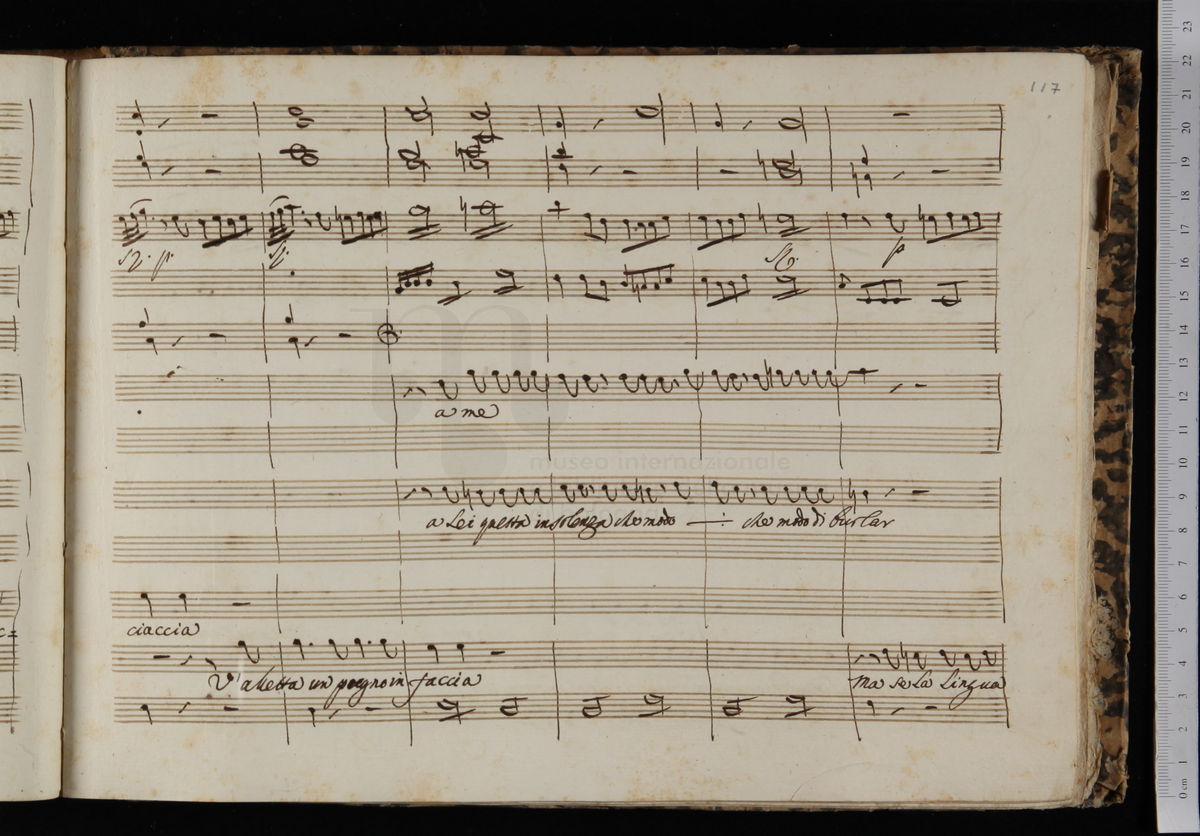 117
sf. p.
sf.
sf.
p
a me
museo internazionale
a Lei questa insolenza che modo —:— che modo di burlar
ciaccia
V'aspetta un pugno in faccia
Ma se la Lingua
23
22
21
20
19
18
17
16
15
14
13
12
11
10
9
8
7
6
5
4
3
2
1
0 cm